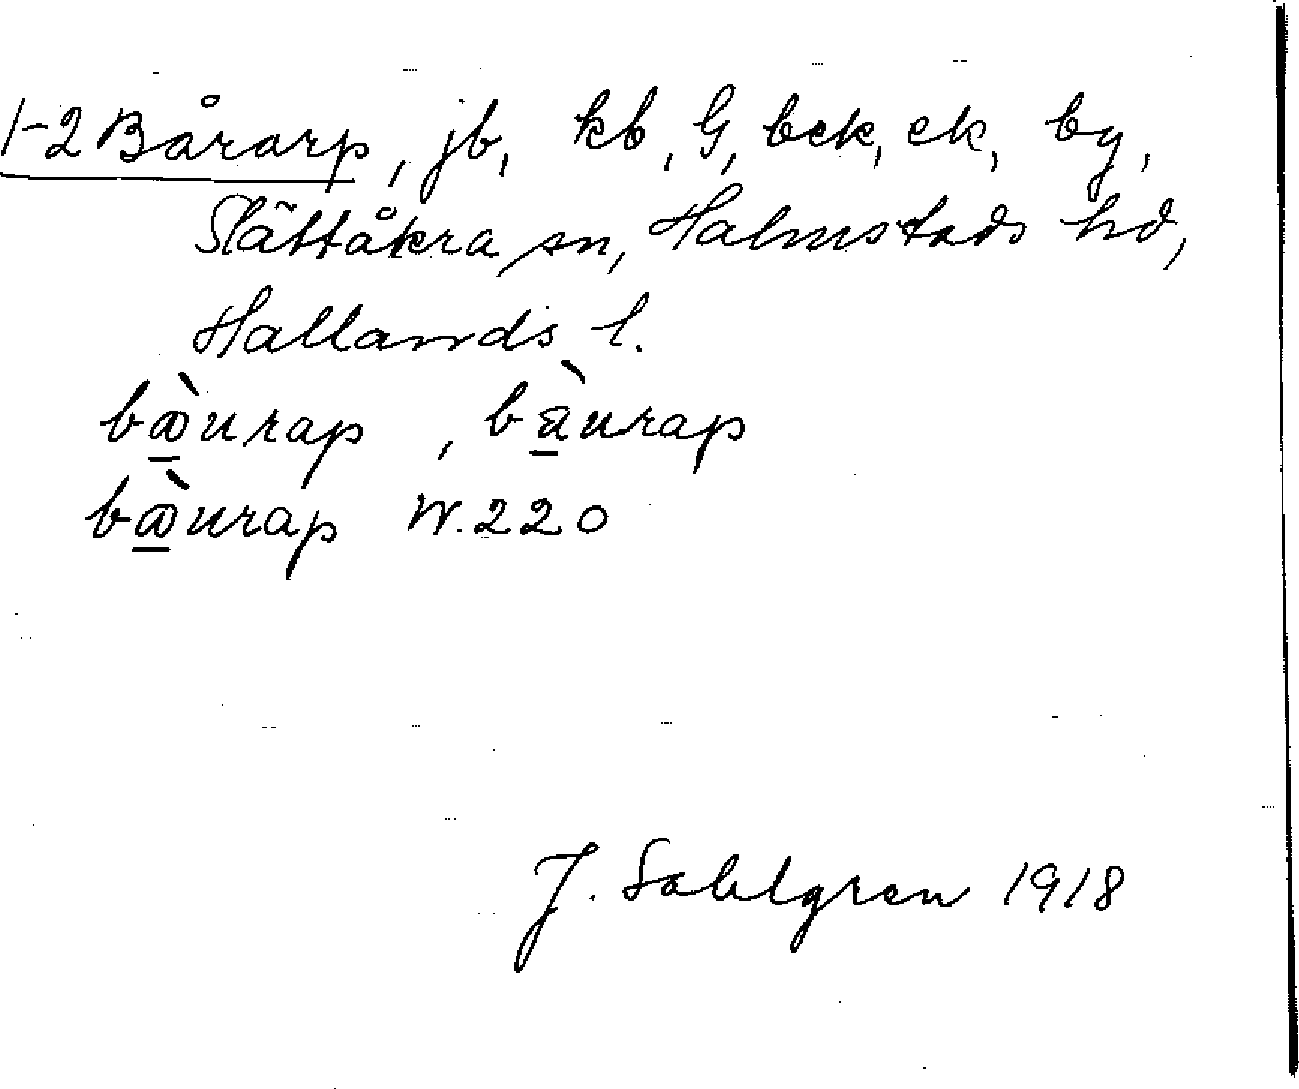 1-2 Bårarp, jb, kb, G, bck, ck, by,
Slättåkra sn, Halmstads hd,
Hallands l.
bὰ̱urap, bà̱urap
bὰ̱urap W. 220
J. Sahlgren 1918